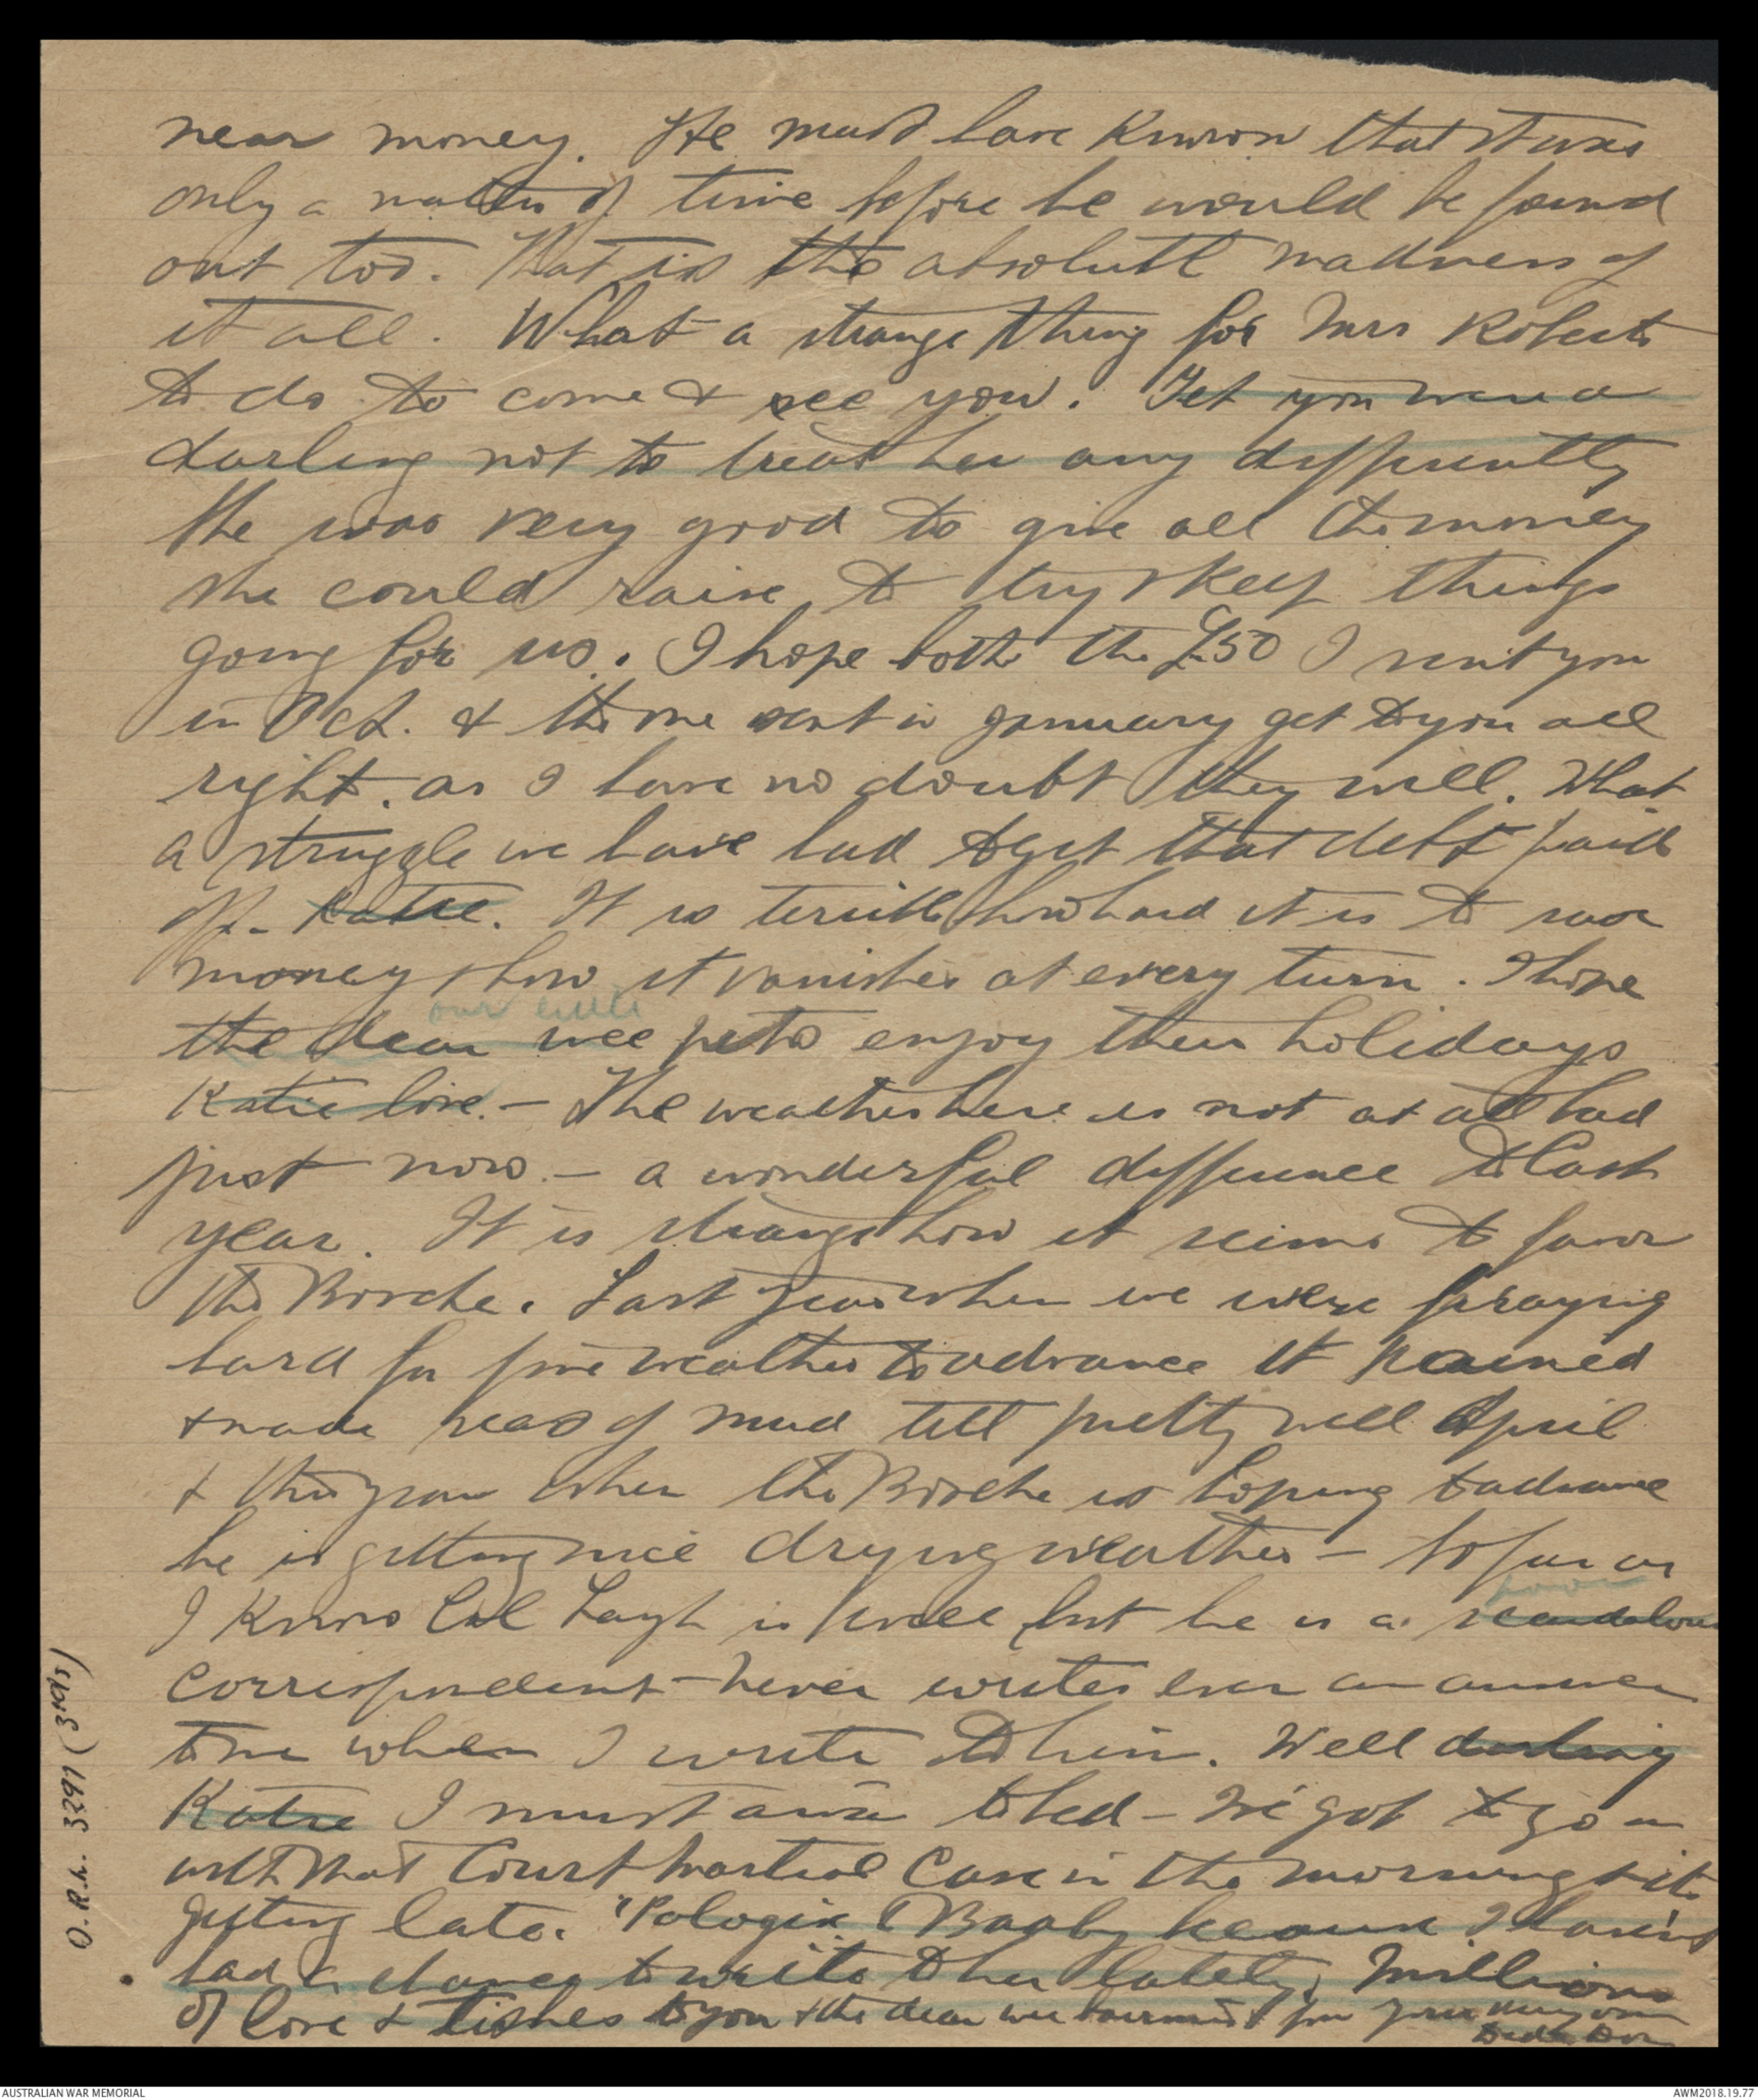 near money. He must have known that it was
only a matter of time before he would be found
out too. That is the absolute madness of
it all. What a strange thing for Mrs Roberts
to do to come & see you. Yet you were a
darling not to treat her any differently
She was very good to give all the money
she could raise to try & keep things
going for us. I hope both the £50 I sent you
in Oct. & the one sent in January get to you all
right. as I have no doubt they will. What
a struggle we have had to get that debt paid
off - Katie. It is terrible how hard it is to save
money & how it vanishes at every turn. I hope
our little
the dear wee pets enjoy their holidays
Katie love. - The weather here is not at all bad
just now - a wonderful difference to last
year. It is strange how it seems to favor
the Bosche. Last year when we were praying
hard for fine weather to advance it rained
& made seas of mud till pretty well April
& this year when the Bosche is hoping to advance
he is getting nice drying weather - So far as
poor
I know Col Leigh is well but he is a scandalous
correspondent - never writes even an answer
to me when I write to him. Well darling
Katie I must away to bed - We got to go on
with that Court Martial Case in the morning & it's
getting late. 'Pologix to Baaby because I haven't
had a chance to write to her lately. Millions
of love & tishes to you & the dear wee bairns from your very own
O.R.L. 3291 (3rd S)
AUSTRALIAN WAR MEMORIAL
AWM2018.19.77